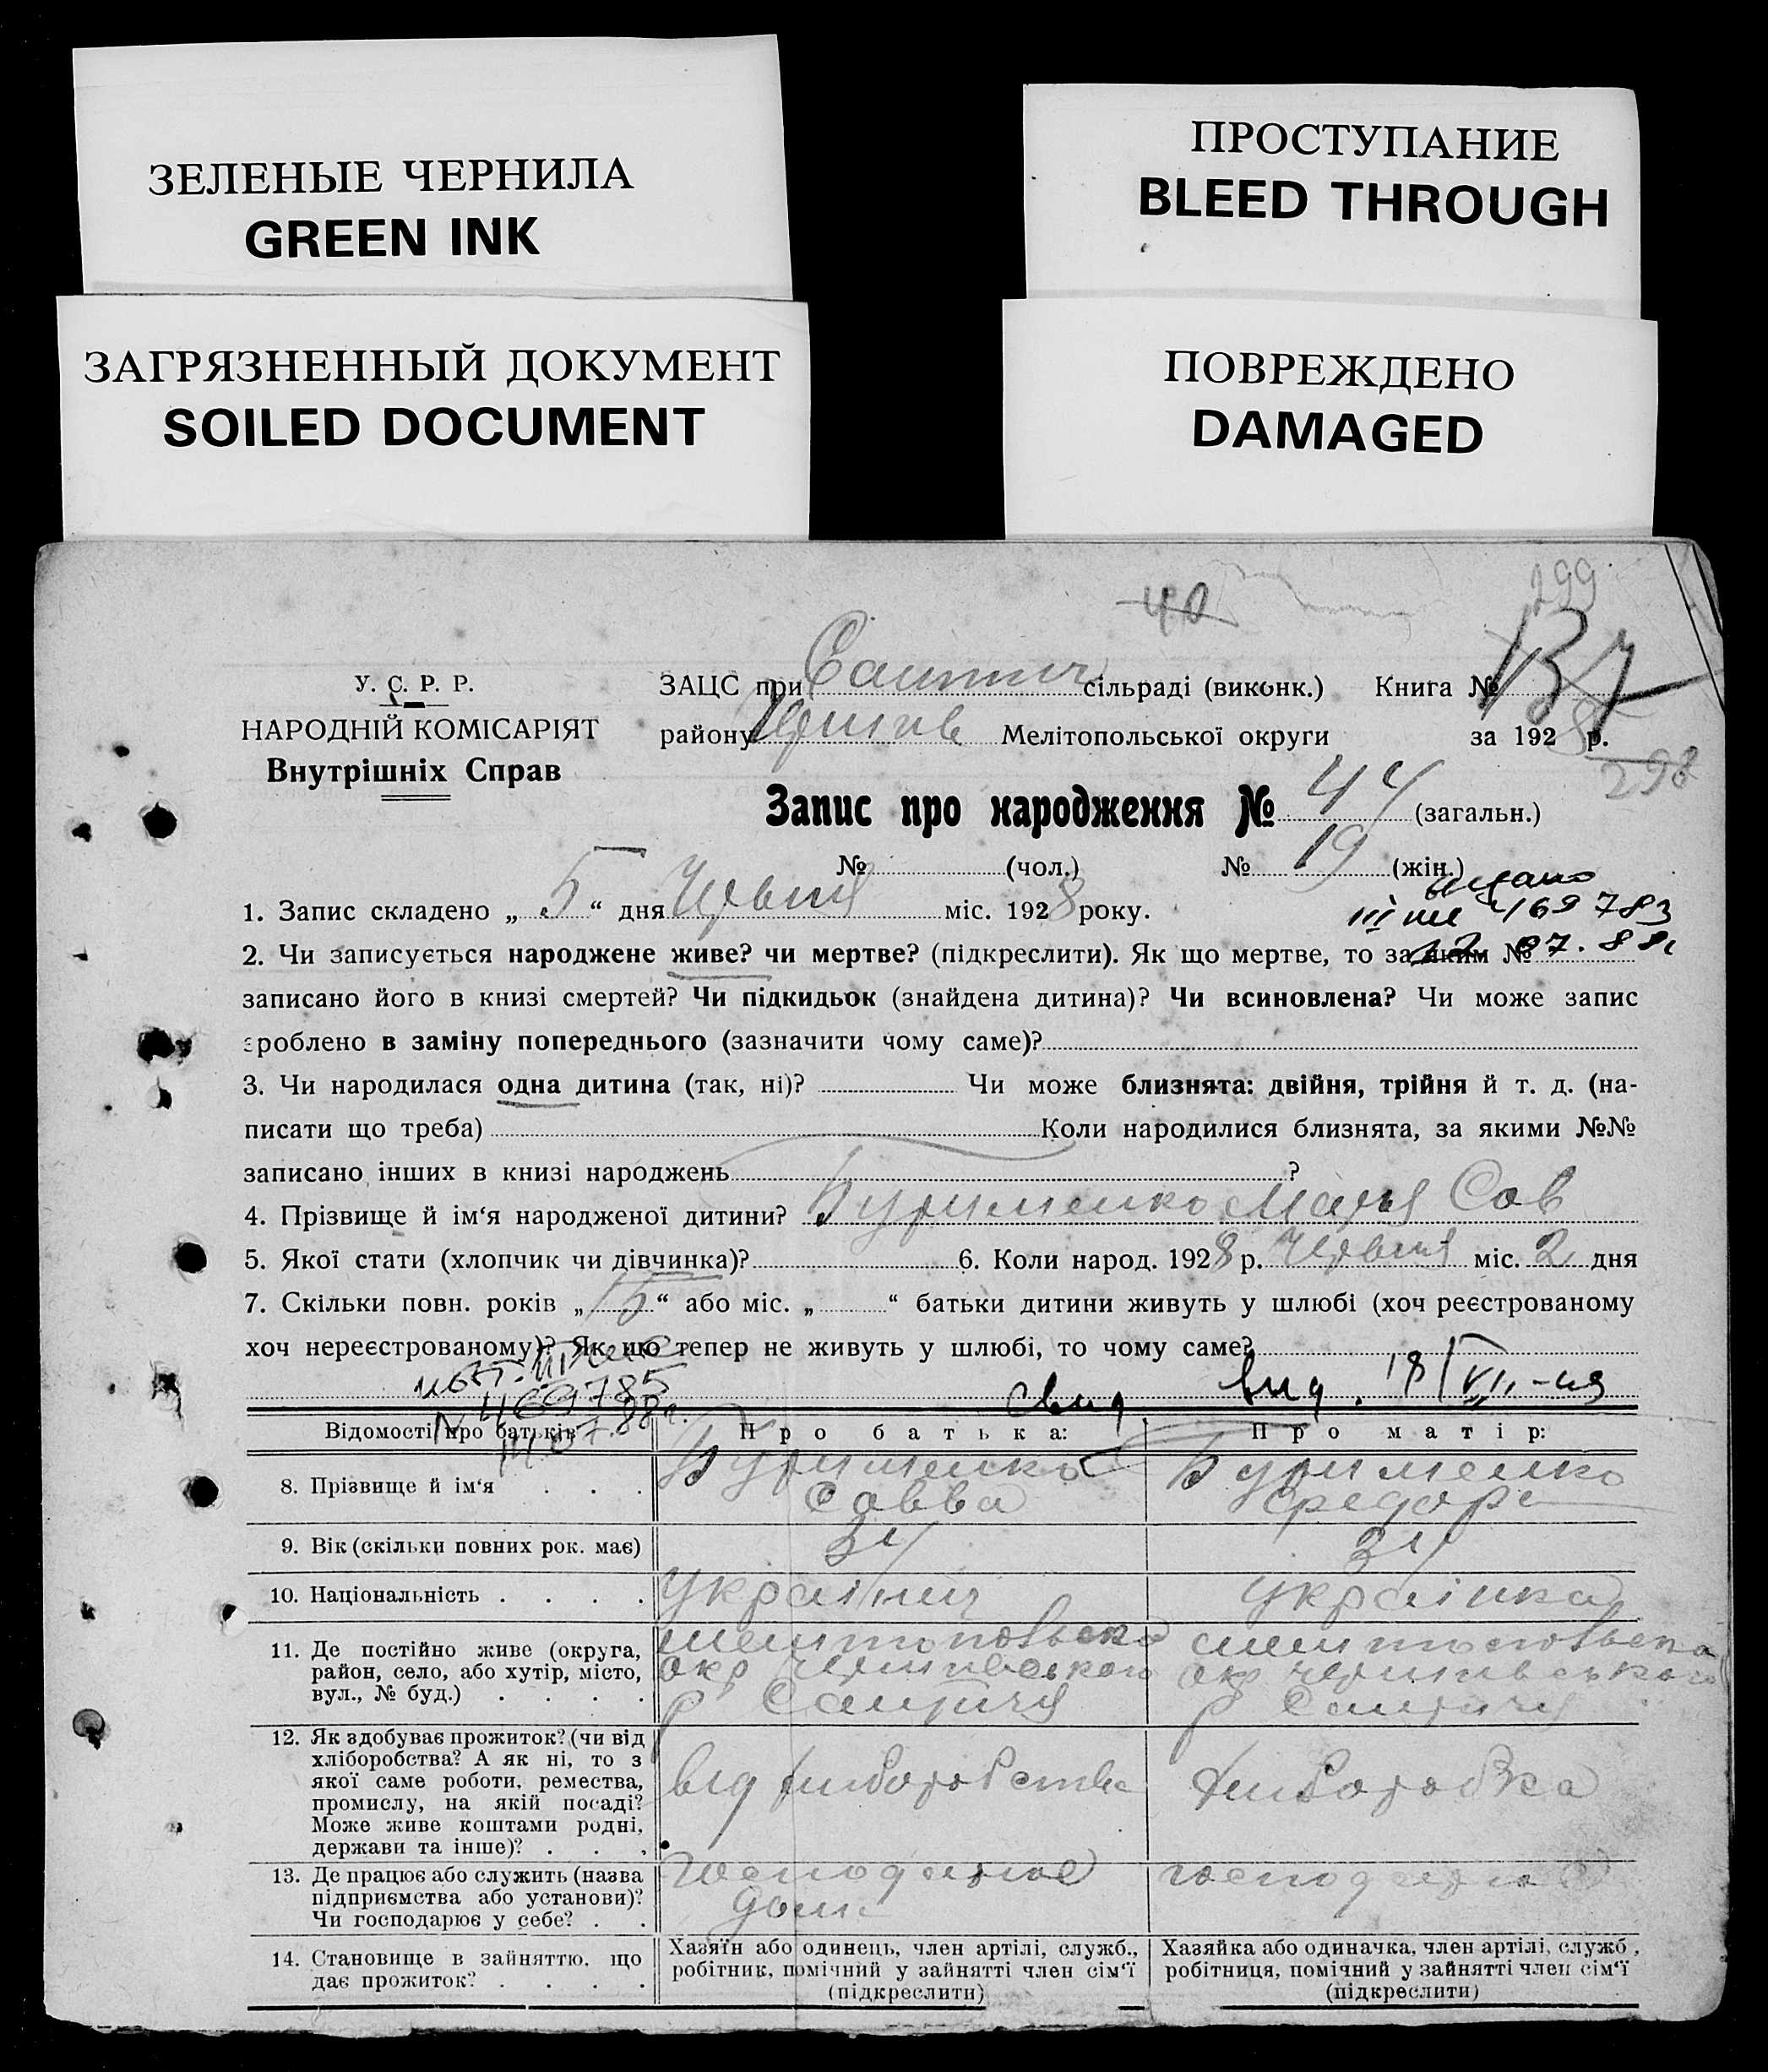 ЗЕЛЕНЫЕ ЧЕРНИЛА
GREEN INK
ПРОСТУПАНИЕ
BLEED THROUGH
ЗАГРЯЗНЕННЫЙ ДОКУМЕНТ
SOILED DOCUMENT
ПОВРЕЖДЕНО
DAMAGED
299
40
137
У. С. Р. Р.
НАРОДНІЙ КОМІСАРІЯТ
Внутрішніх Справ
ЗАЦС при сільраді (виконк.) Книга №
району Мелітопольської округи за 1928 р.
298
Запис про народження № 44 (загальн.)
№ (чол.) № 19 (жін.)
видано
1. Запис складено „ 5 “ дня Червня міс. 1928 року.
469783
2. Чи записується народжене живе? чи мертве? (підкреслити). Як що мертве, то за яким №
07.88
записано його в книзі смертей? Чи підкидьок (знайдена дитина)? Чи всиновлена? Чи може запис
зроблено в заміну попереднього (зазначити чому саме)?
3. Чи народилася одна дитина (так, ні)? Чи може близнята: двійня, трійня й т. д. (на-
писати що треба) Коли народилися близнята, за якими №№
записано інших в книзі народжень ?
4. Прізвище й ім‘я народженої дитини? Буримснко Марья Сов
5. Якої стати (хлопчик чи дівчинка)? 6. Коли народ. 1928 р. Червня міс. 2 дня
7. Скільки повн. років „ 15 “ або міс. „ “ батьки дитини живуть у шлюбі (хоч реєстрованому
хоч нереєстрованому)? Як що тепер не живуть у шлюбі, то чому саме?
469785
14.07.88г.
Свид вид. 18/VII-49
Відомості про батьків Про батька: Про матір:
8. Прізвище й ім‘я Бурименко Савва Бурименко
9. Вік (скільки повних рок. має) 34 34
10. Національність українц українка
11. Де постійно живе (округа, район, село, або хутір, місто, вул., № буд.)
окр р
окр р
12. Як здобуває прожиток? (чи від хліборобства? А як ні, то з якої саме роботи, ремества, промислу, на якій посаді? Може живе коштами родні, держави та інше)?
від хліборобства
хліборобка
13. Де працює або служить (назва підприємства або установи)? Чи господарює у себе?
14. Становище в зайняттю, що дає прожиток?
Хазяїн або одинець, член артілі, служб., робітник, помічний у зайнятті член сім‘ї (підкреслити)
Хазяйка або одиначка, член артілі, служб., робітниця, помічний у зайнятті член сім‘ї (підкреслити)